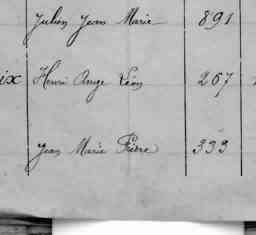 Julien Jean Marie 891
ix Henri Ange Léon 267
Jean Marie Frère 333